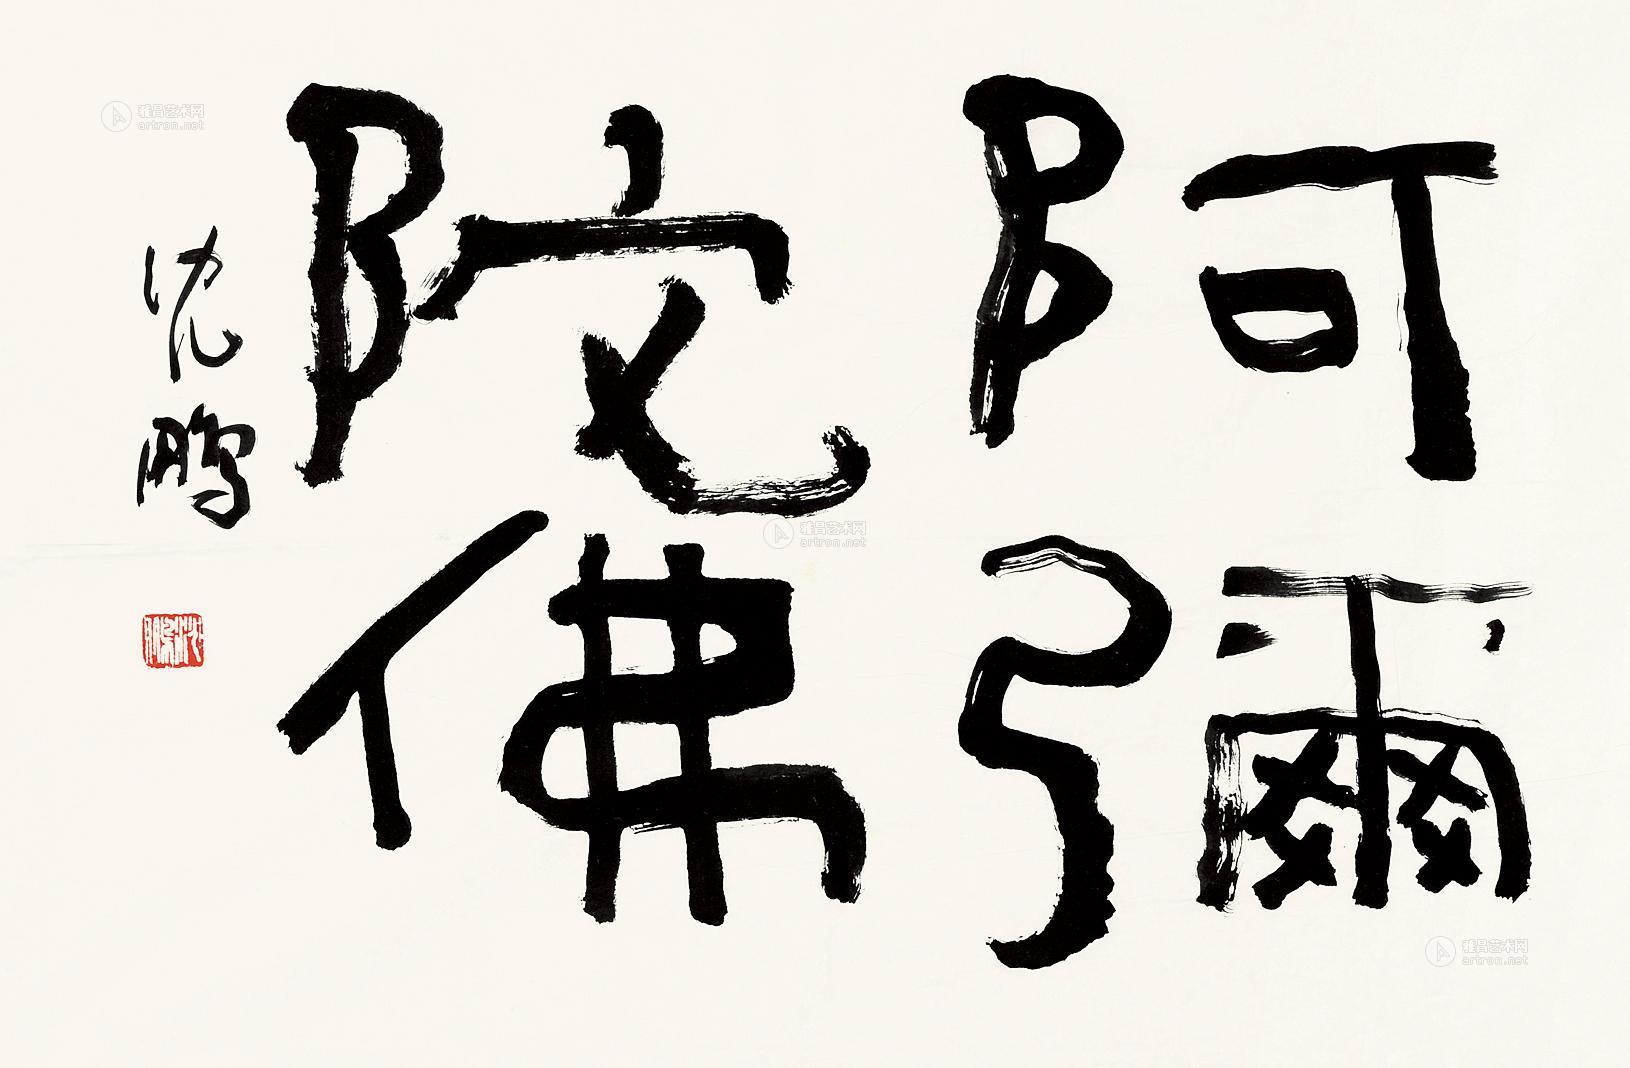 阿彌
陀佛
沈鵬
雅昌艺术网
artron.net
雅昌艺术网
artron.net
雅昌艺术网
artron.net